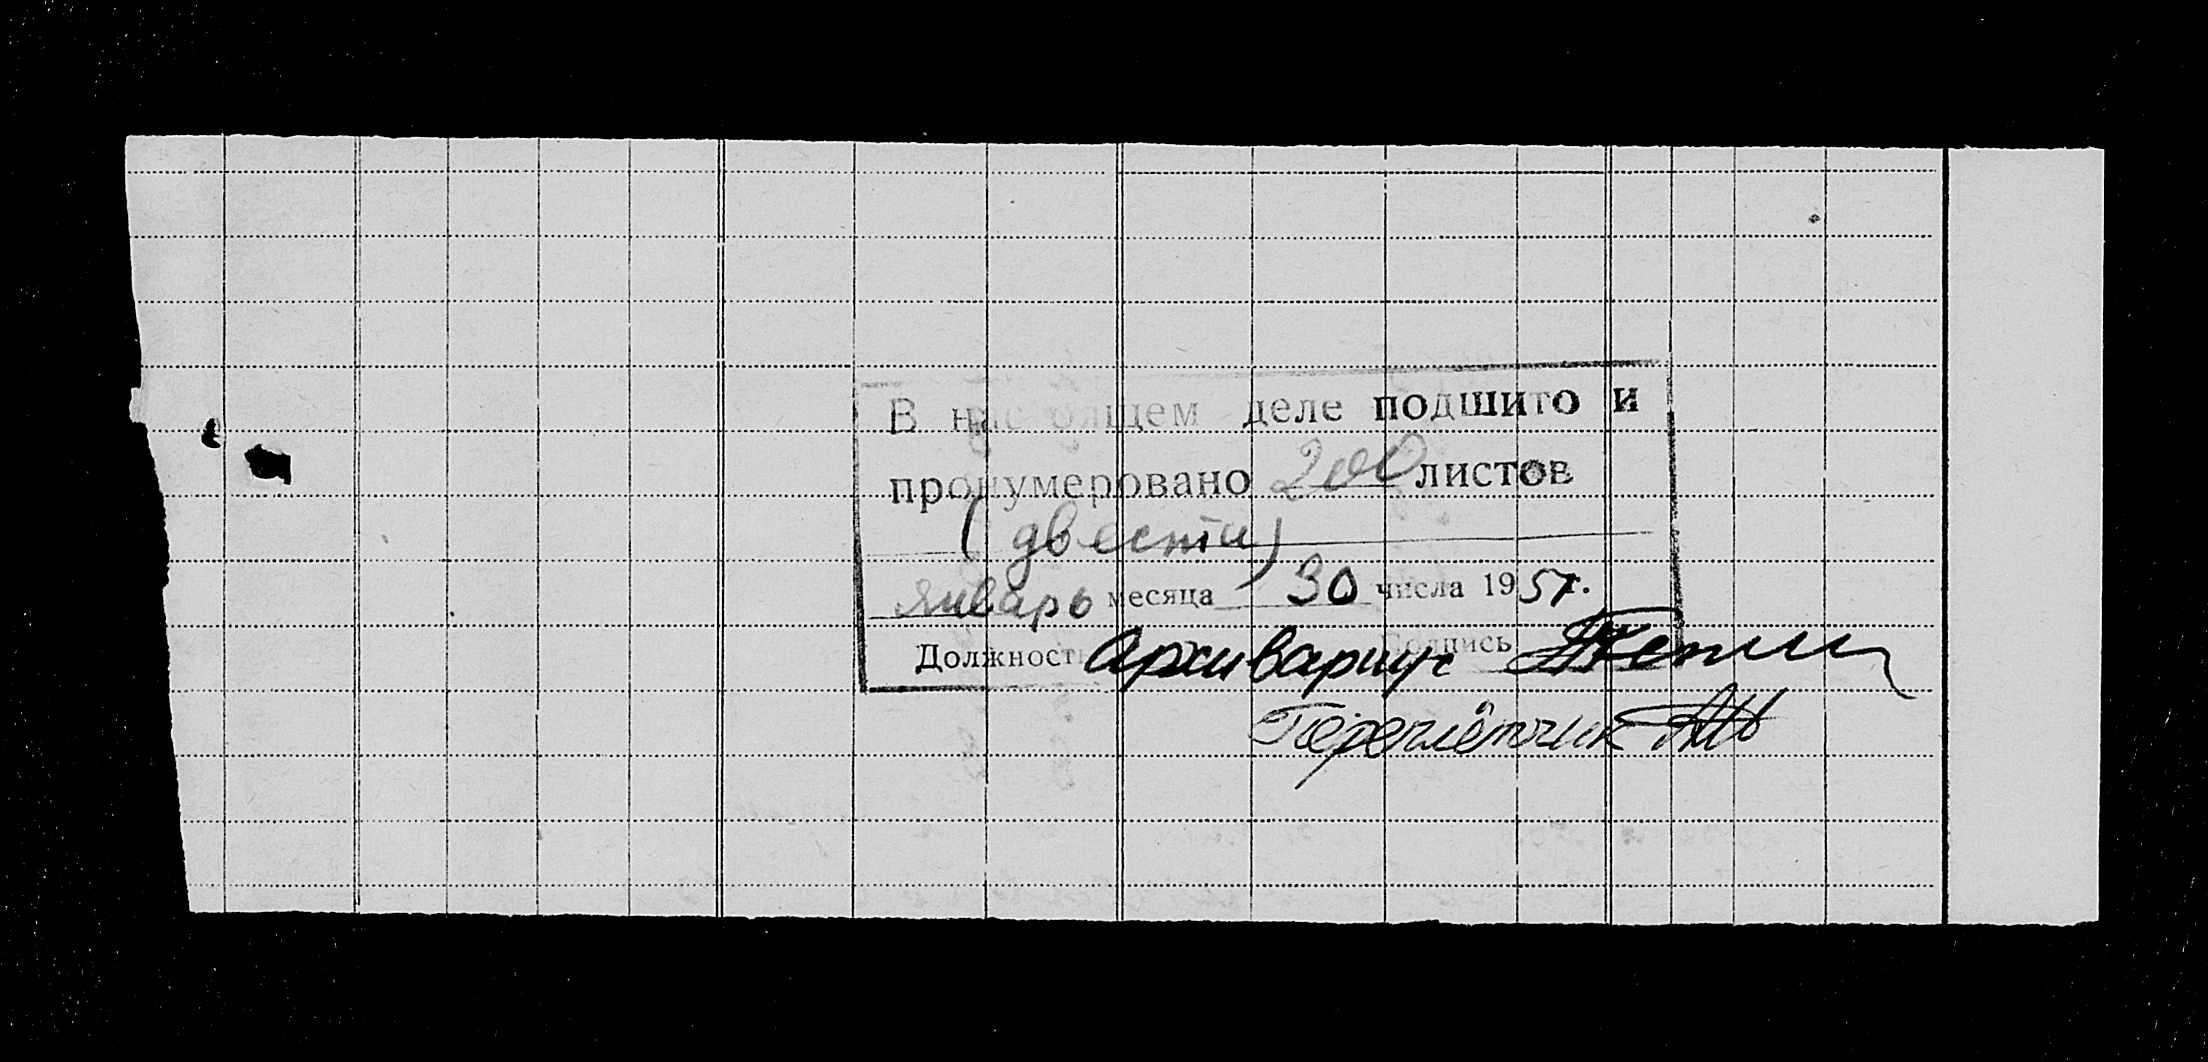 В настоящем деле подшито и
пронумеровано 200 листов
(двести)
январь месяца 30 числа 1957г.
Должность Архивариус Подпись
Переплётчик